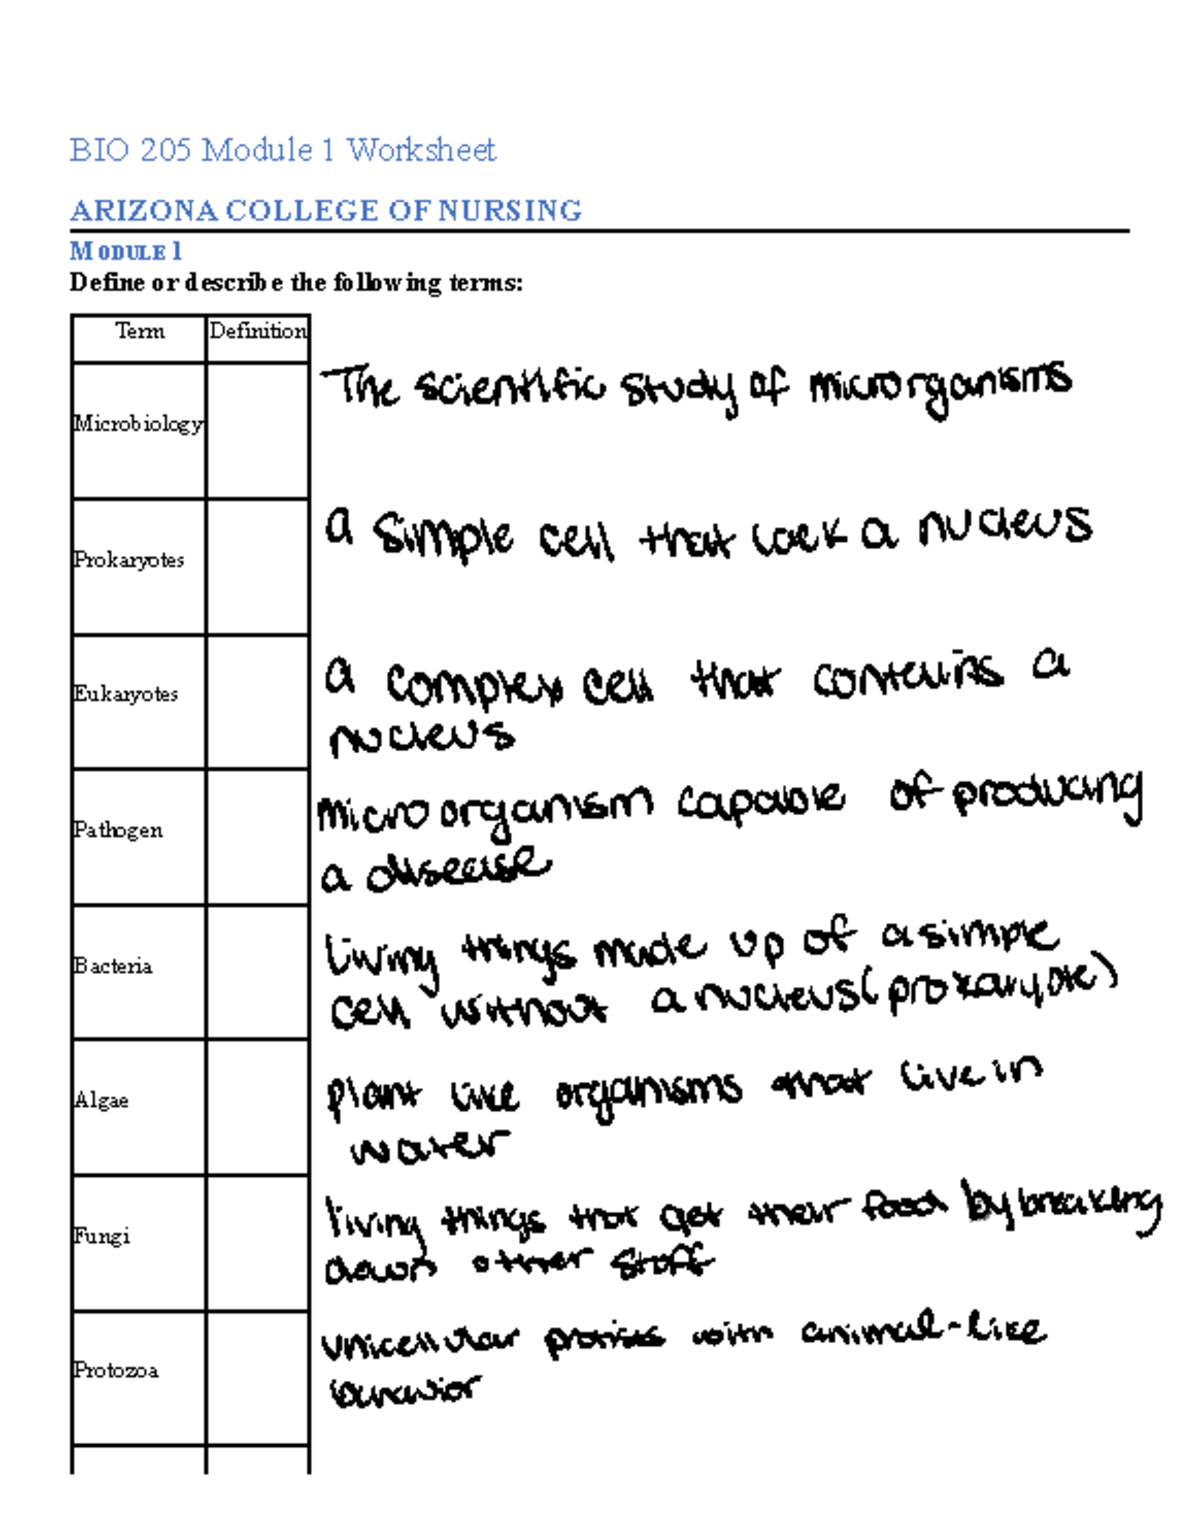 BIO 205 Module 1 Worksheet
ARIZONA COLLEGE OF NURSING
MODULE 1
Define or describe the following terms:
Term Definition
Microbiology The scientific study of microrganisms
Prokaryotes a simple cell that lack a nucleus
Eukaryotes a complex cell that contains a
nucleus
Pathogen microorganism capable of producing
a disease
Bacteria living things made up of a simple
cell without a nucleus (prokaryote)
Algae plant like organisms that live in
water
Fungi living things that get their food by breaking
down other stuff
Protozoa unicellular protists with animal-like
behavior